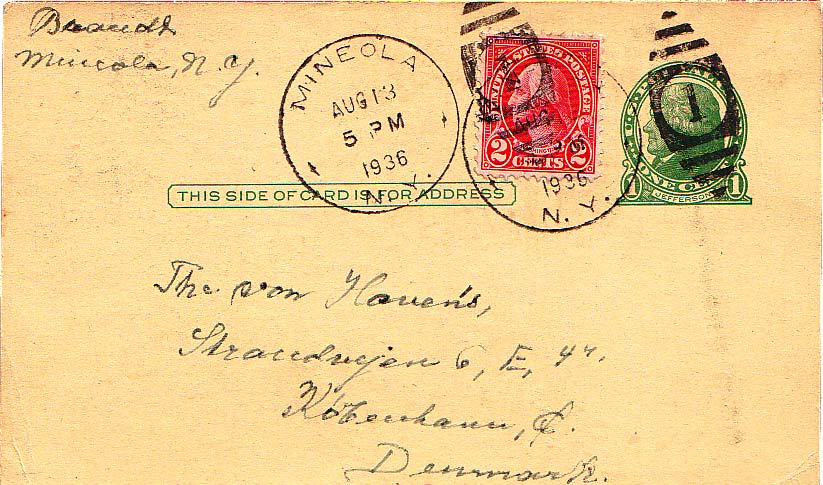 Brandt
Mineola, N.Y.
MINEOLA
AUG 13
5 PM
1936
N. Y.
UNITED STATES POSTAGE
2 CENTS 2
1936
N. Y.
1
ONE CENT
1 JEFFERSON 1
THIS SIDE OF CARD IS FOR ADDRESS
The von Haven's,
Strandvejen 6, E, 4⁷.
København, Ø.
Denmark.